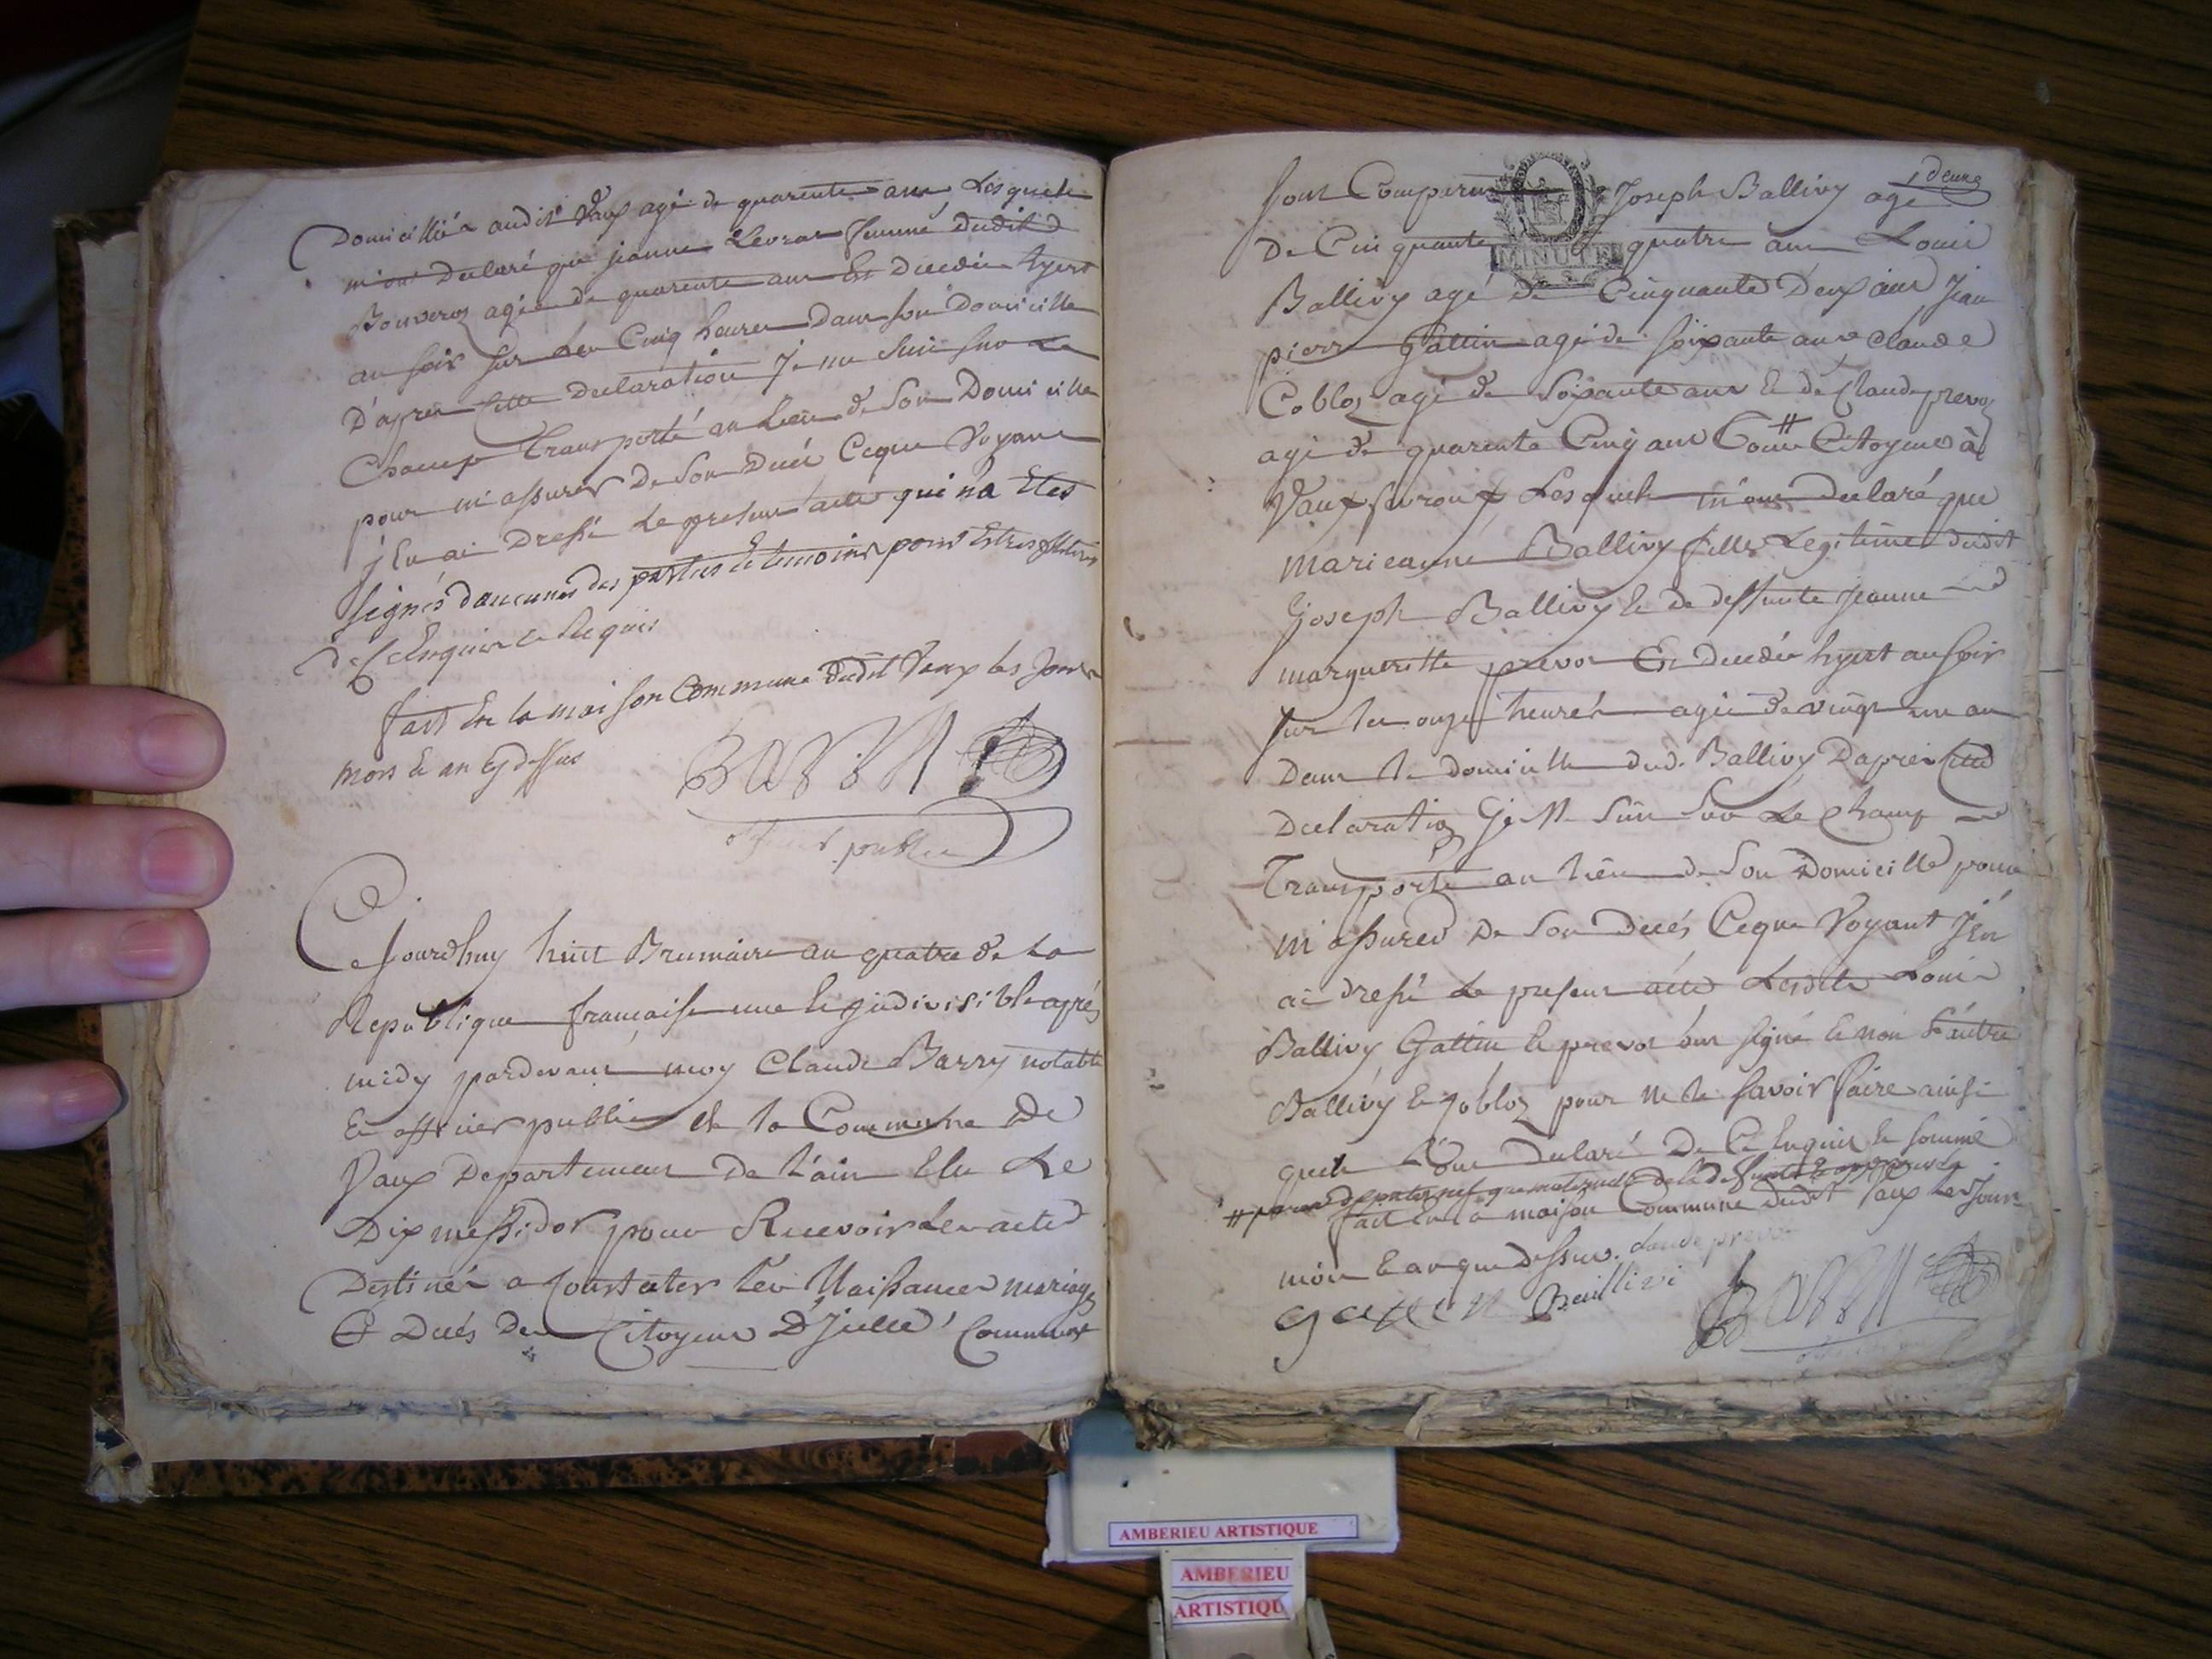 Domicillié audit Vaux agé de quarente ans Lesquels
m'ont Declaré que jeanne Levrat femme dudit
Bonveroz agée de quarente ans Est Decedée hyert
au soir sur Les Cinq heures Dans son Domicille
D'apres Cette Declaration Je me suis sur Le
Champ Transporté au Lieu de Son Domicille
pour m'assurer De Son Decés Ceque Voyant
j'En ai Dressé Le present acte qui n'a Etes
signés d'aucunes des parties Et temoins pour Estres
De Ce Enquis Et Requis
fait En la maison Commune dudit Vaux les Jours
mois Et an Cydessus
Barry
officier public
Cejourdhuy huit Brumaire an quatre de La
Republique francaise une Et jndivisible aprés
midy pardevant moy Claude Barry notable
Et officier public de la Commune De
Vaux Departement De L'ain Elu Le
Dix messidor pour Recevoir Les actes
Destinés a Constater Les Naissances mariages
Et Decés Des Citoyens D'Jcelle Commune
Sont Comparus Joseph Ballivy agé
MINUTE
De Cinquante quatre ans Louis
Ballivy agé de Cinquante Deux ans Jean
pierre Gattin agé de soixante ans Claude
Cobloz agé de Soixante ans Et de Claude prevoz
agé de quarente Cinq ans Tous # Citoyens à
Vaux Lesquels m'ont Declaré que
marieanne Ballivy fille Legitime dudit
Joseph Ballivy Et de deffunte Jeanne
margueritte prevot Est Decedée hyert au soir
sur les onze heures agée de vingt un an
Dans le domicille dud. Ballivy D'aprés Cette
Declaration Je M Suis Sur Le Champ
Transporté au Lieu de Son Domicille pour
m'assurer De Son Decés Ceque Voyant J'En
ai dressé Le present acte Lesdits Louis
Ballivy Gattin Et prevot ont signé Et non L'autre
Ballivy Et Cobloz pour ne le savoir faire ainsi
quils L'ont declaré De Ce Enquis Et sommé
# parens paternels que maternels de la deffunte
fait En la maison Commune dudit Vaux Les Jour
mois Et an que dessus. claude prevot
gatten Baillivi Barry